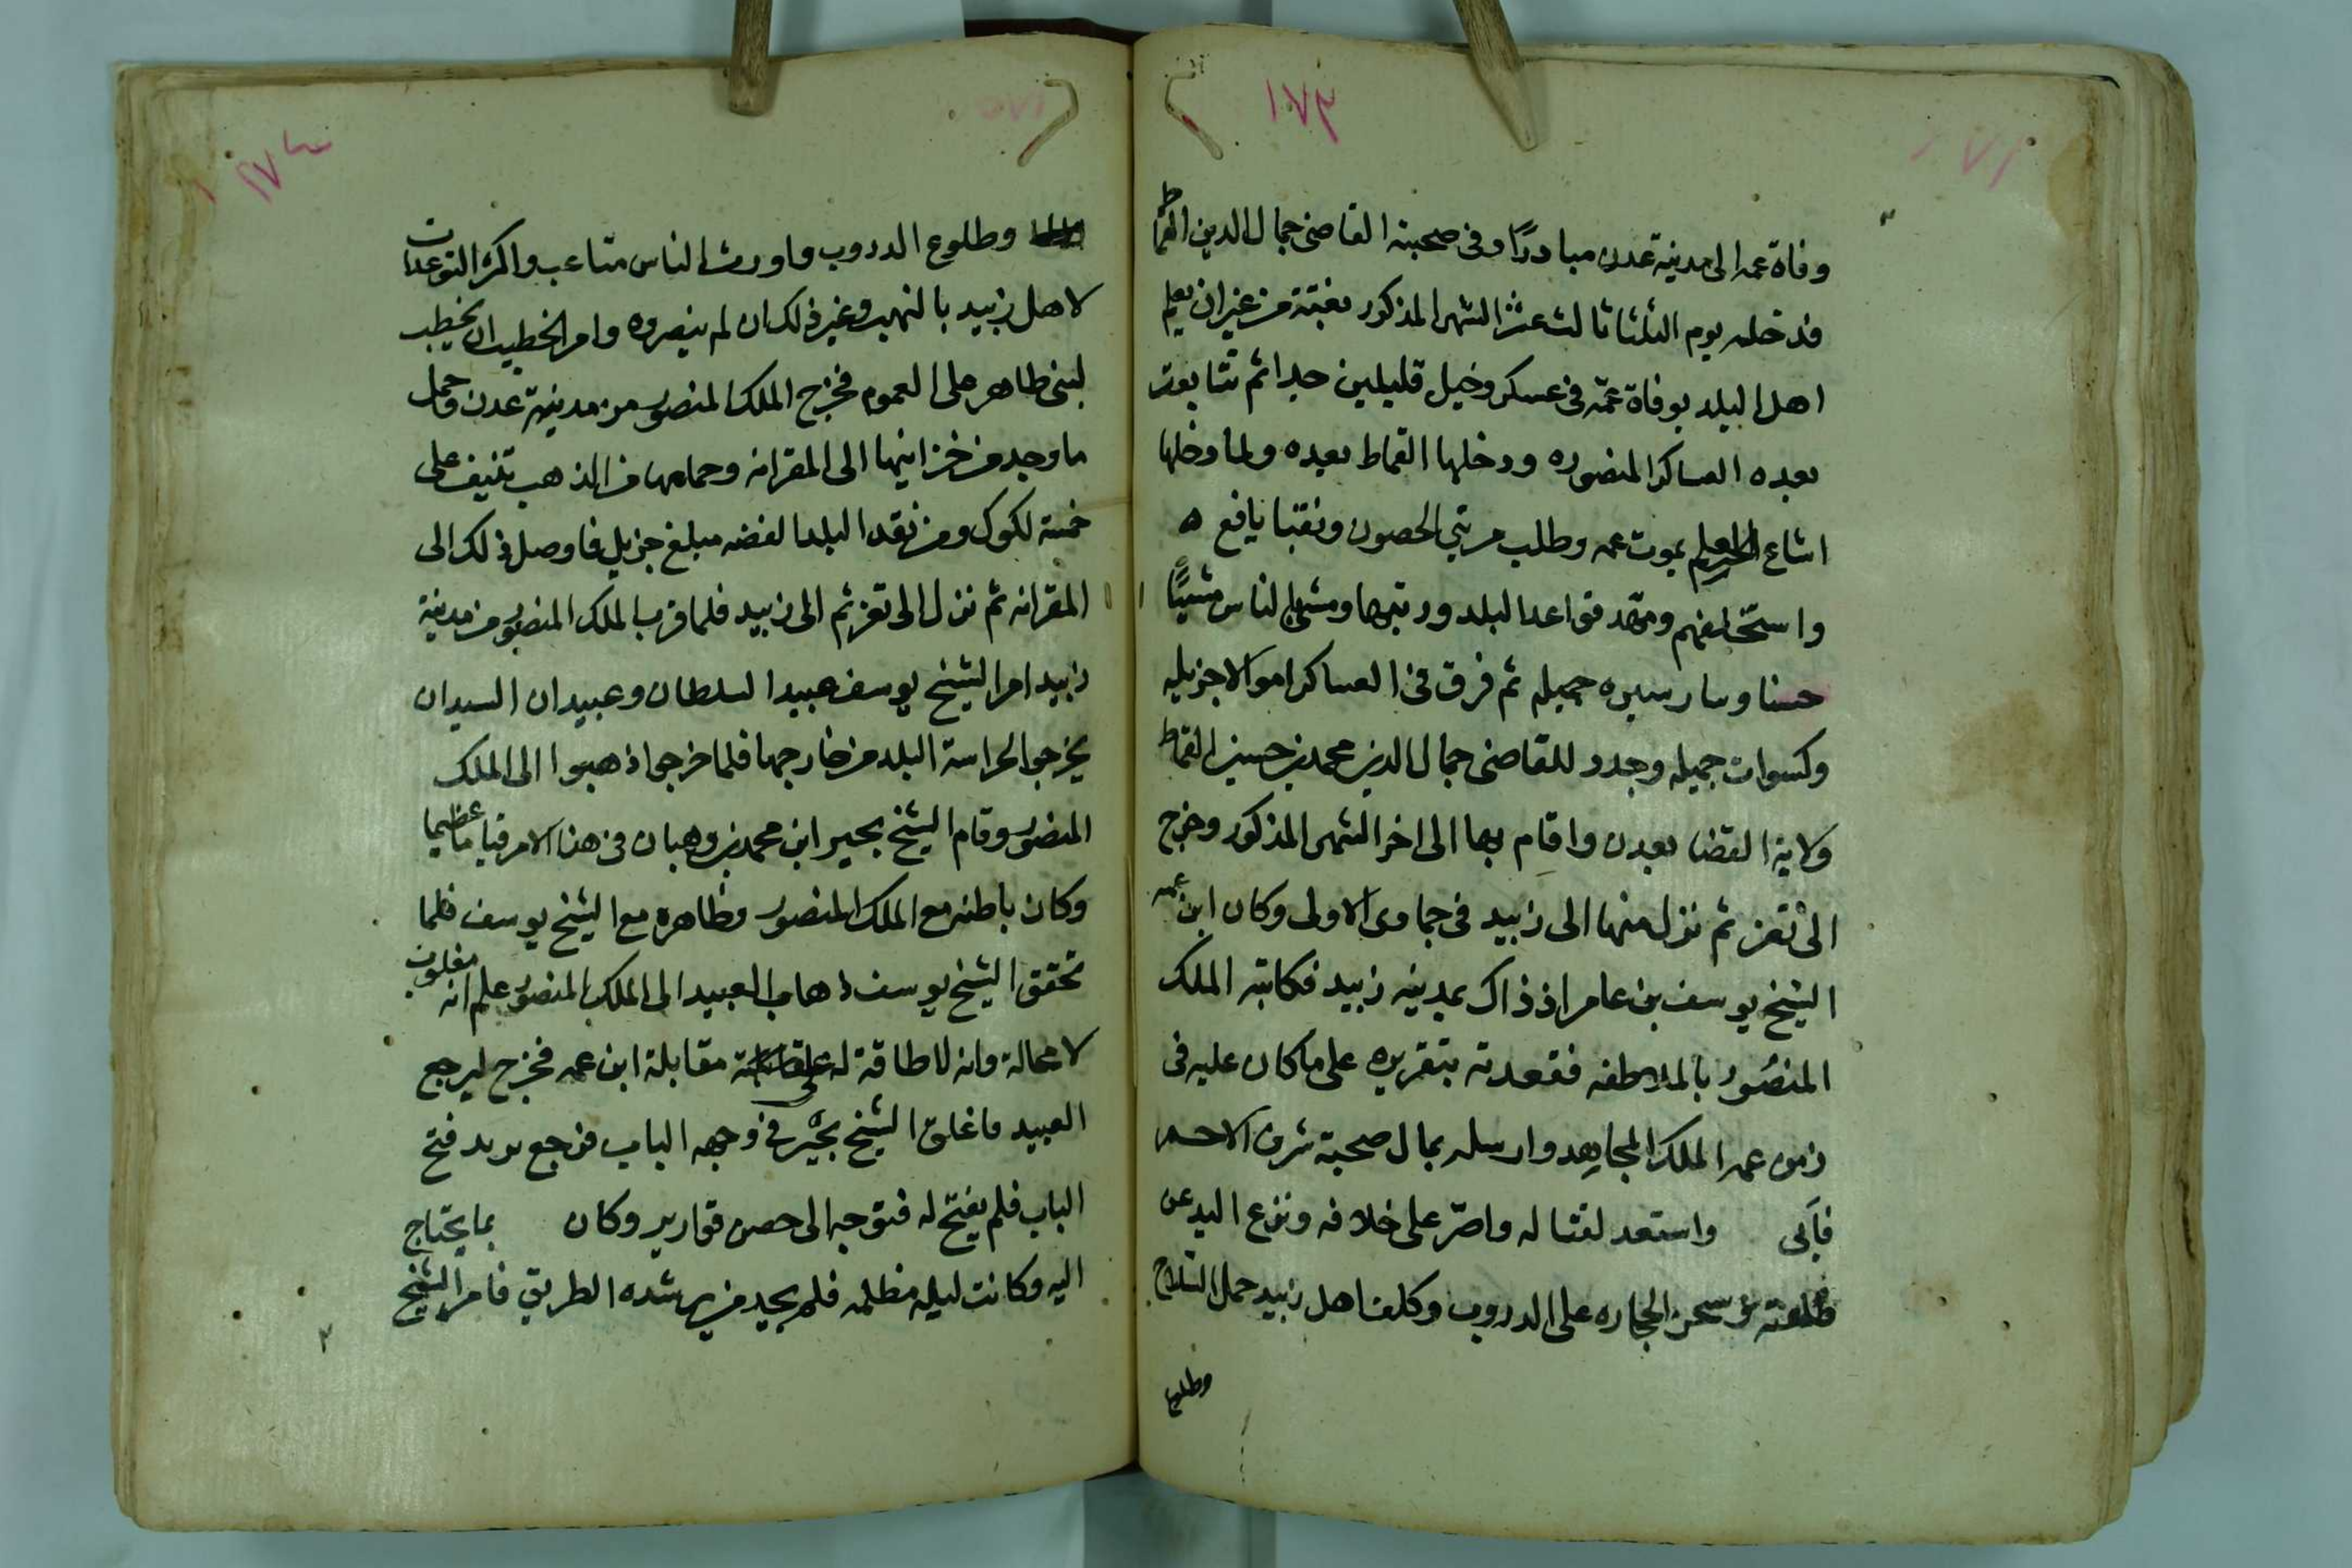 ١٧٣
وفاة عمه الى مدينة عدن مبادرًا وفى صحبته القاضى جمال الدين القماط
فدخله يوم الثلثا ثالث عشر الشهر المذكور بغتة من غير ان يعلم
اهل البلد بوفاة عمّه فى عسكر وخيل قليلين جدا ثم تتابعت
بعده العساكر المنصوره ودخلها القماط بعيده ولما دخلها
اشاع بموت عمه وطلب مرتبي الحصون ونقبا يافع ه
واستحلفهم ومهّد قواعد البلد ورتبها ومشى الناس مشيًا
حسنا وسار سيره جميله ثم فرق فى العساكر اموالا جزيله
وكسوات جميله وجدد للقاضى جمال الدين محمد بن حسين القماط
ولاية القضا بعدن واقام بها الى اخر الشهر المذكور وخرج
الى تعز ثم نزل منها الى زبيد فى جمادى الاولى وكان ابن عمه
الشيخ يوسف بن عامر اذ ذاك بمدينه زبيد فكاتبه الملك
المنصور بالملاطفه فقعدته بتقريره على ما كان عليه فى
زمن عمه الملك المجاهد وارسله بمال صحبة شرف الاحمر
فأبى واستعد لقتاله واصرّ على خلافه ونزع اليد عن
وشحن الحجاره على الدروب وكلف اهل زبيد حمل السلاح
وطلوع
١٧٤
وطلوع الدروب واورث الناس متاعب واكثر التوعدات
لاهل زبيد بالنهب وغير ذلك ان لم ينصروه وامر الخطيب ان يخطب
لبنى طاهر على العموم فخرج الملك المنصور من مدينة عدن وحمل
ما وجد من خزاينها الى المقرانه وحمامها من الذهب تنيف على
خمسة لكوك ومن نقد البلد الفضه مبلغ جزيل فاوصل ذلك الى
المقرانه ثم نزل الى تعز ثم الى زبيد فلما قرب الملك المنصور من مدينة
زبيد امر الشيخ يوسف عبيد السلطان وعبيد ان السيد ان
يخرجوا لحراسة البلد من خارجها فلما خرجوا ذهبوا الى الملك
المنصور وقام الشيخ بحير ابن محمد بن وهبان فى هذا الامر قياما عظيما
وكان باطنه مع الملك المنصور وظاهره مع الشيخ يوسف فلما
تحقق الشيخ يوسف ذهاب العبيد الى الملك المنصور علم انه مغلوب
لا محالة وانه لا طاقة له على مقابلة ابن عمه فخرج ليرجع
العبيد فاغلق الشيخ بحير فى وجهه الباب فرجع يريد فتح
الباب فلم يفتح له فتوجه الى حصن قوارير وكان بما يحتاج
اليه وكانت ليله مظلمه فلم يجد من يرشده الطريق فامر الشيخ
٢